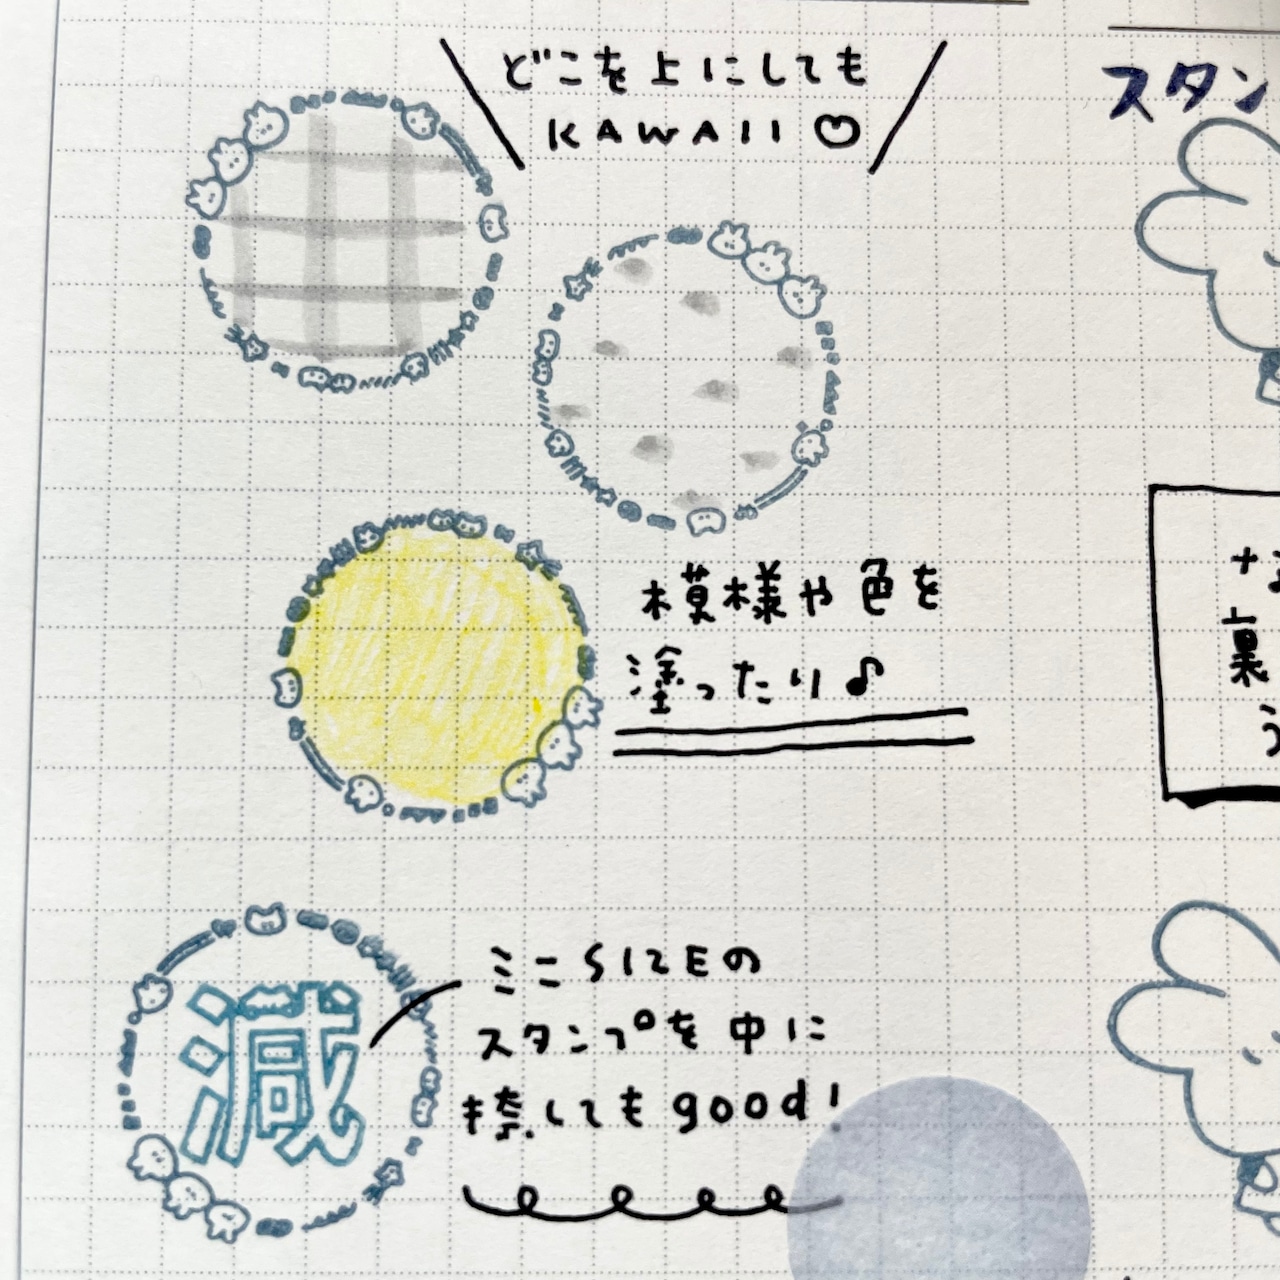 どこを上にしても
KAWAII♡
スタン
模様や色を
塗ったり♪
裏
減
ミニSIZEの
スタンプを中に
捺してもgood!